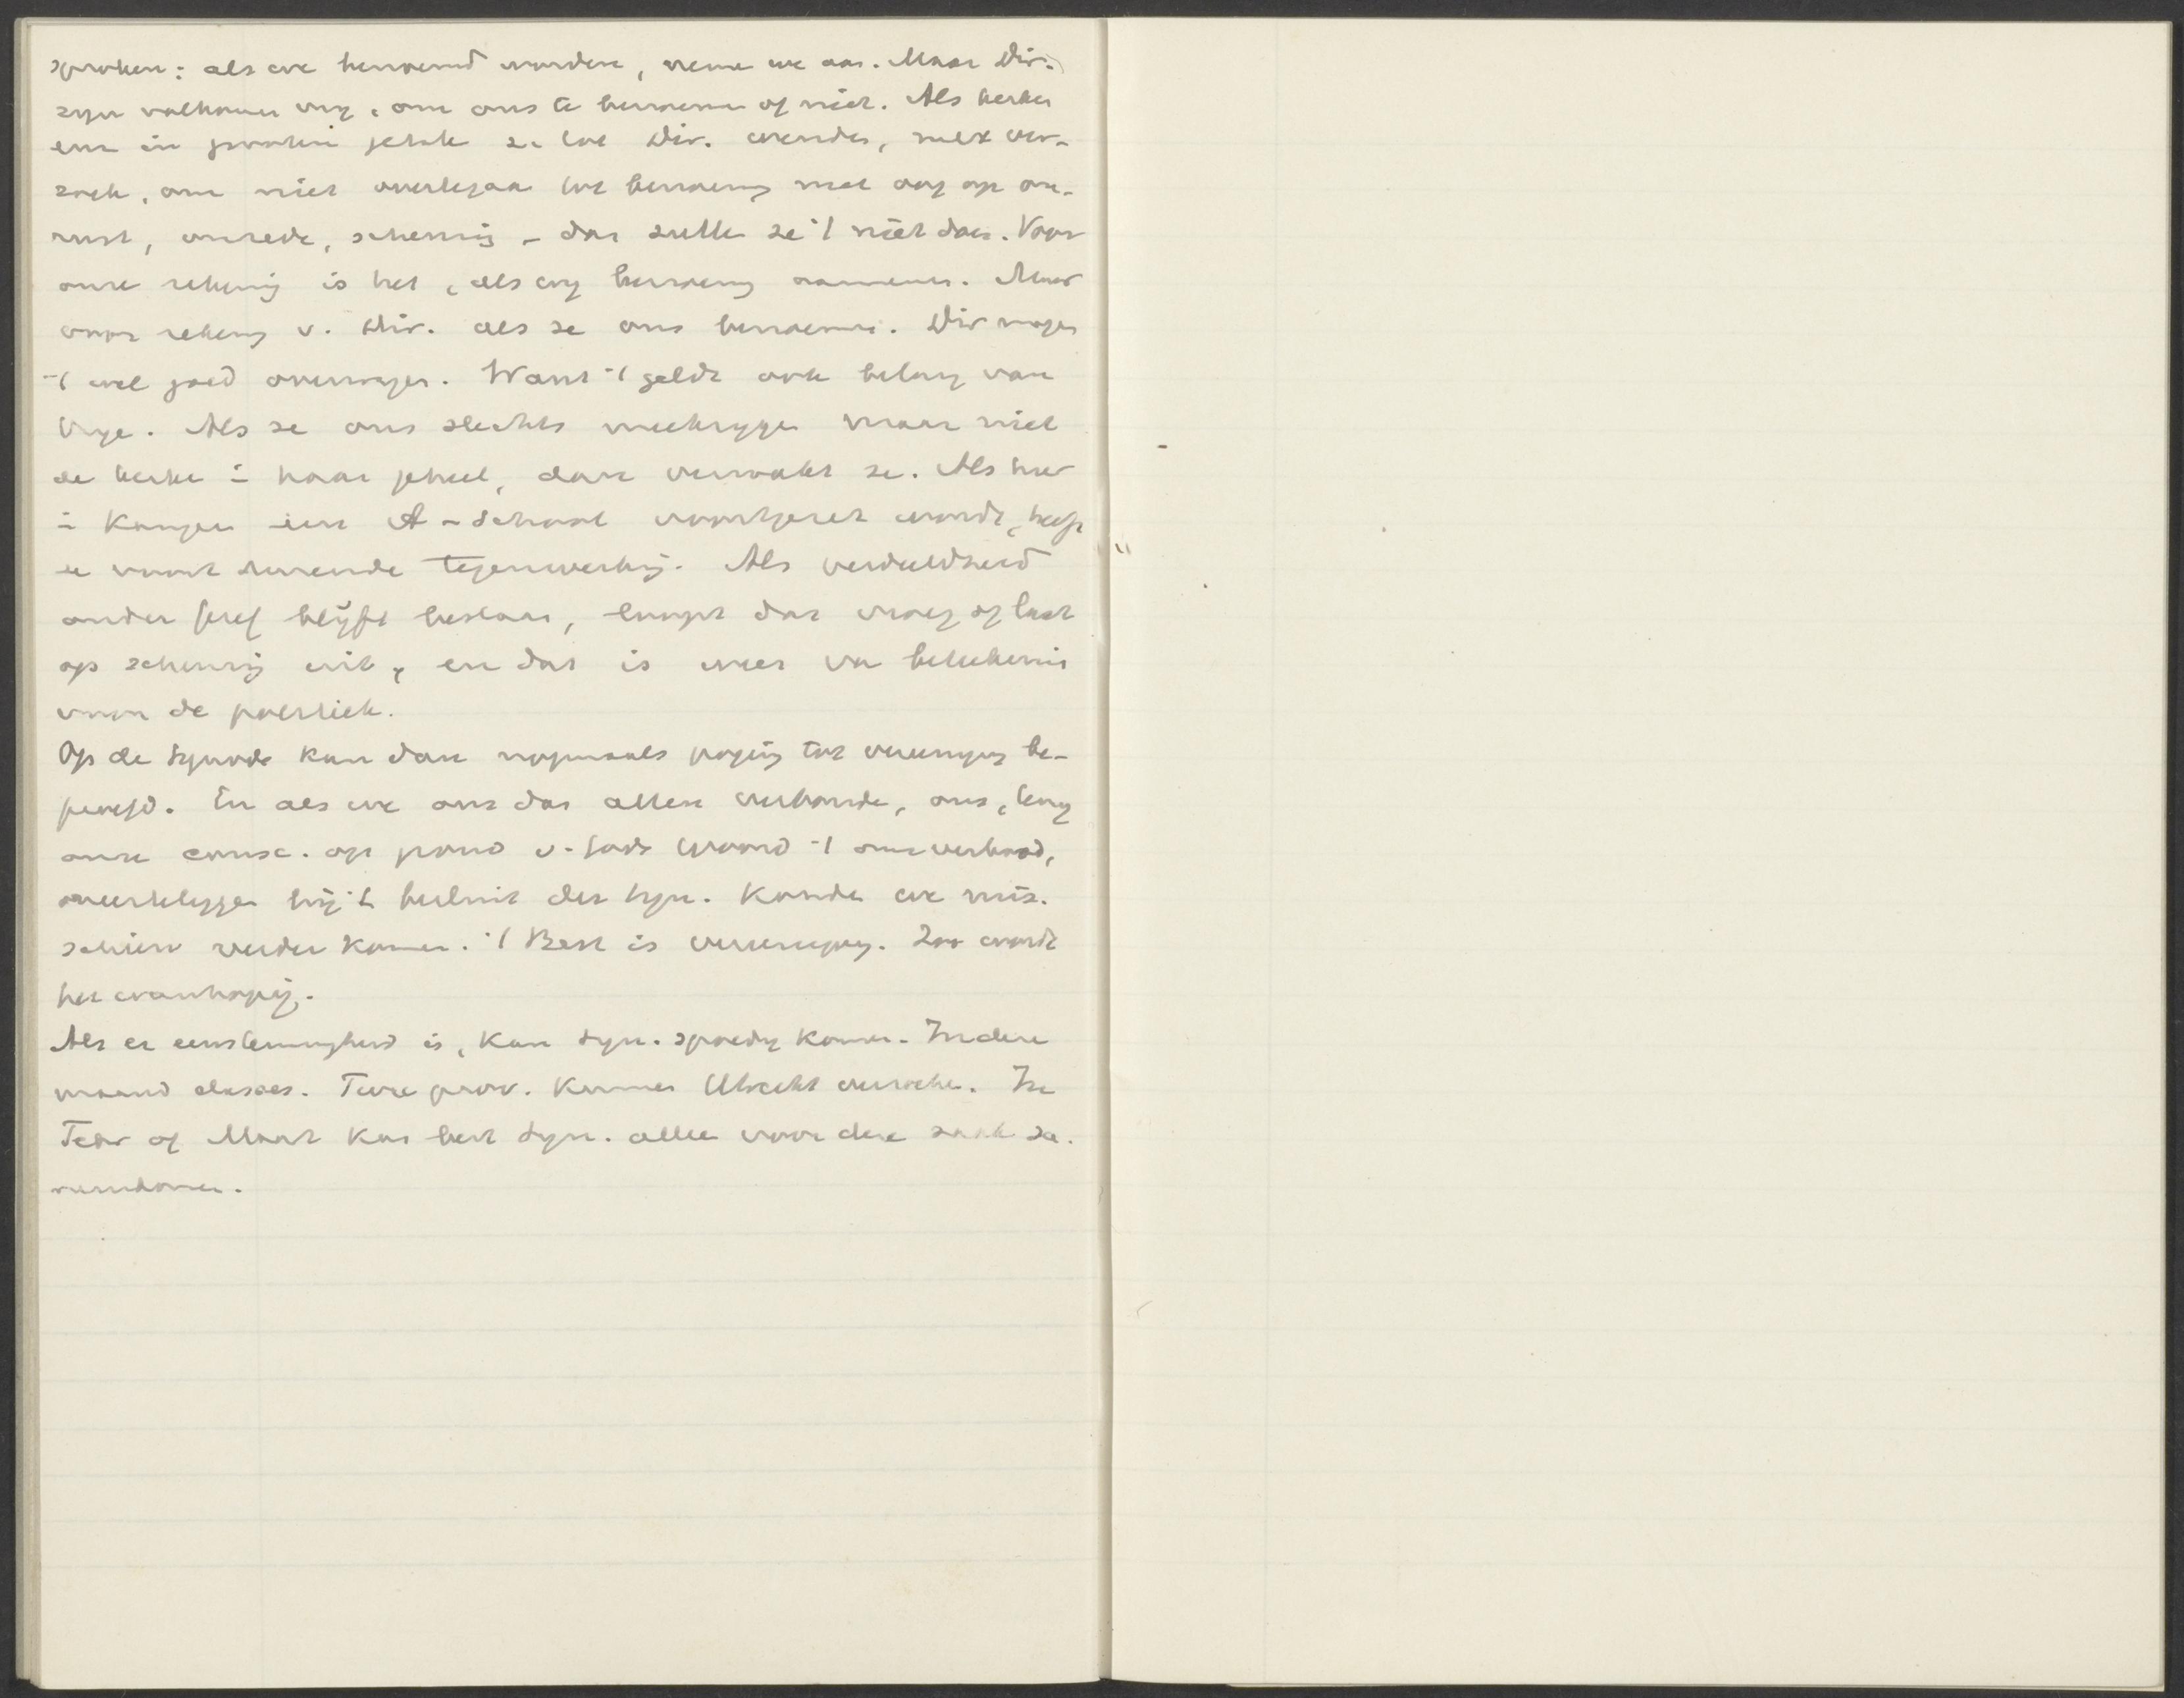 sproken: als we benoemd worden, neme we aan. Maar Dir.
zyn volkomen vry, om ons te benoeme of niet. Als kerken
en in grooten getale z. tot Dir. wenden, met ver-
zoek, om niet overtegaan tot benoeming met oog op on-
rust, onvrede, scheuring – dan zulle ze 't niet doen. Voor
onze rekening is het, als wy benoeming aannemen. Maar
voor rekening v. Dir. als ze ons benoemen. Dir mogen
't wel goed overwegen. Want 't geldt ook belang van
Vrye. Als ze ons slechts meekrygen maar niet
de kerke i haar geheel, dan verzwakt ze. Als hier
i Kampen een A-School voortgezet wordt,
er voortdurende tegenwerking. Als verdeeldheid
onder Geref blyft bestaan, loopt dat vroeg of laat
op scheuring uit, en dat is weer van beteekenis
voor de politiek.
Op de Synode kan dan nogmaals poging tot vereeniging be-
proefd. En als we ons dan allen verbonden, ons, tenzy
onze consc. op grond v. Gods Woord 't ons verbood,
neertelegge bij 't besluit der Syn. Konden we mis-
schien verder komen. 't Best is vereeniging. Zoo wordt
het wanhopig.
Als er eenstemmigheid is, kan Syn. spoedig komen. In deze
maand classes. Twee prov. kunnen Utrecht verzoeken. In
Febr of Maart kan best Syn. alleen voor deze zaak sa-
menkomen.